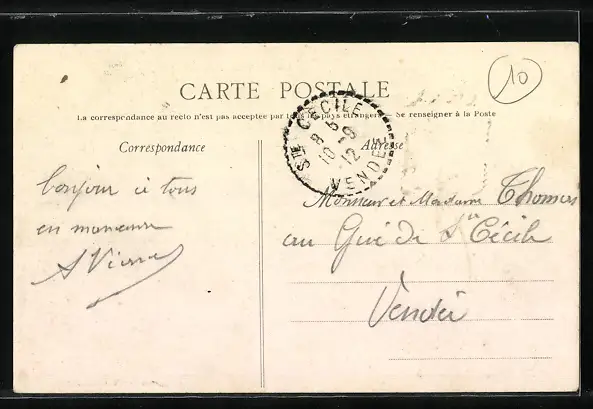 10
CARTE POSTALE
La correspondance au recto n'est pas acceptée par tous les pays étrangers. Se renseigner à la Poste
Correspondance
Adresse
STE CÉCILE
8 5
10 -9
12
VENDÉE
bonjour à tous
en manœuvre
Monsieur et Madame Thomas
au Gué de Ste Cécile
Vendée